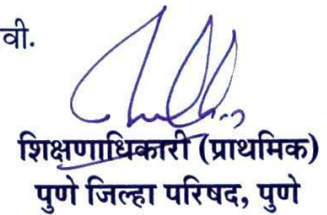 वी.
शिक्षणाधिकारी (प्राथमिक)
पुणे जिल्हा परिषद, पुणे